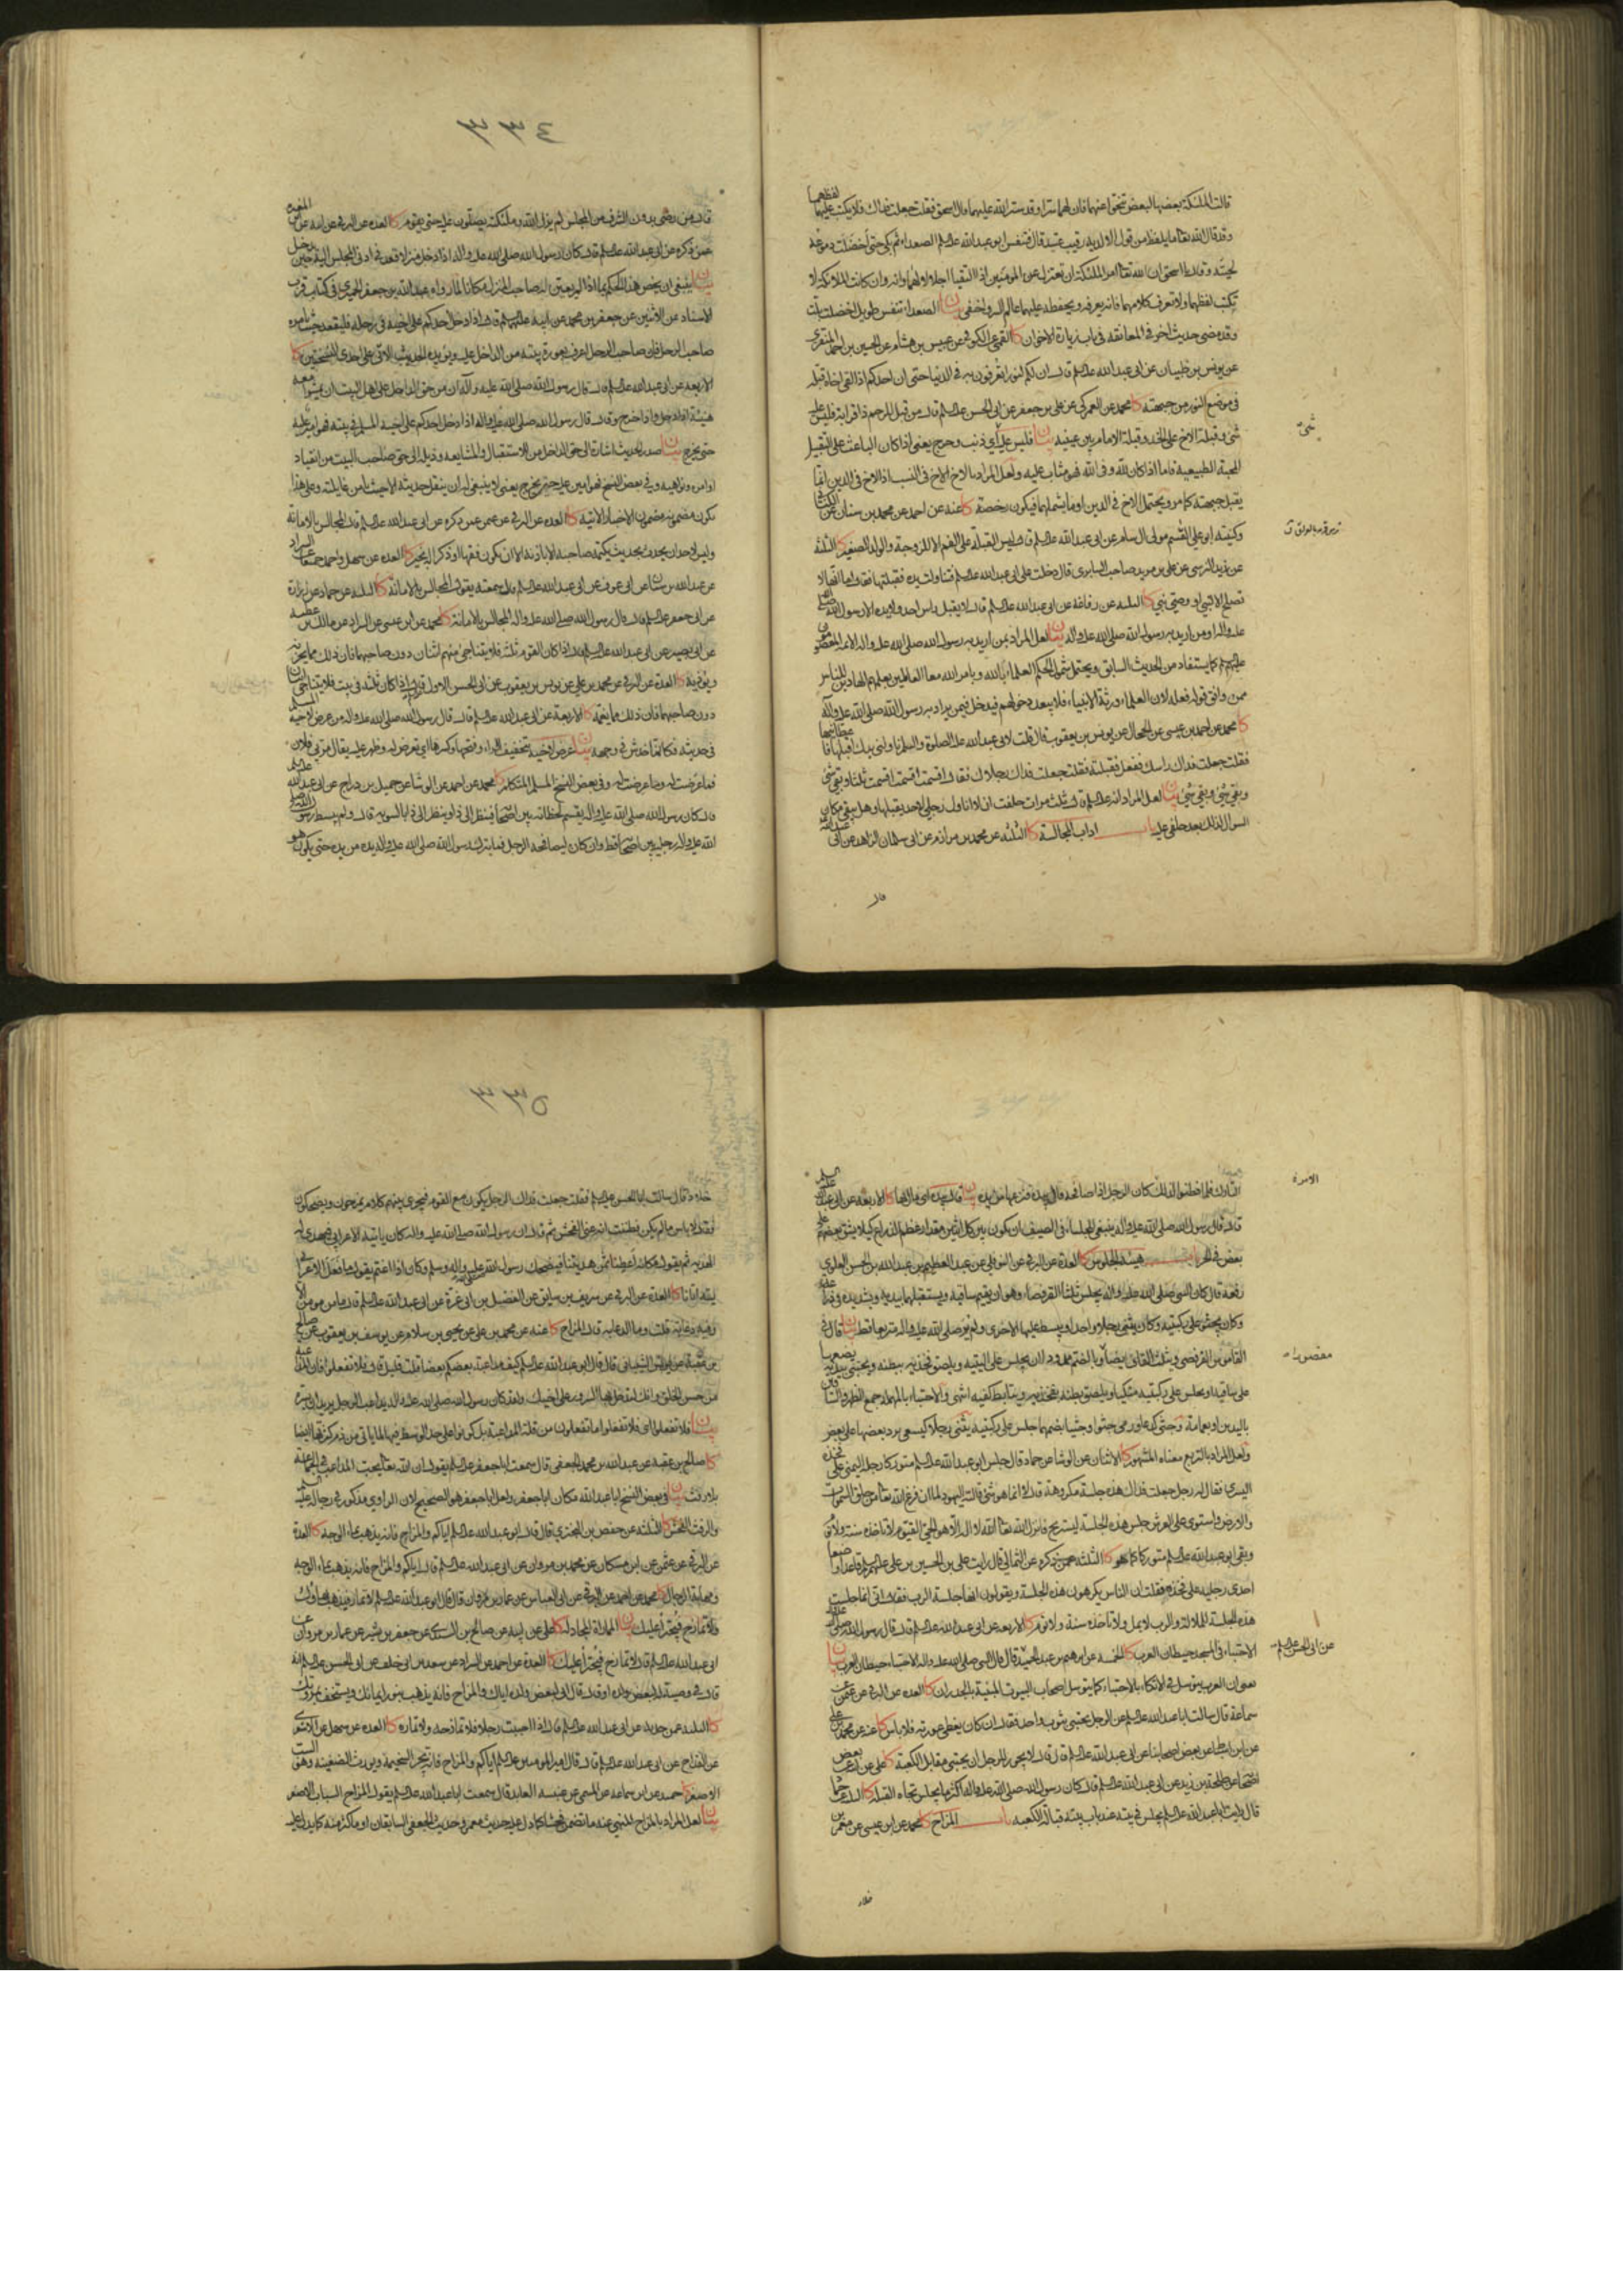 قالت الملئكة بعضها لبعض تنحوا عنهما فان لهما سترا وقد ستر الله عليهما قال اسحق فقلت جعلت فداك فلا يكتب عليهما لفظهما
وقد قال الله تعا ما يلفظ من قول الا لديه رقيب عتيد قال فتنفس ابو عبد الله عليه السلم الصعداء ثم بكى حتى اخضلت دموعه
لحيته وقال يا اسحق ان الله تعا امر الملئكة ان تعتزل عن المومنين اذا التقيا اجلالا لهما وانه وان كانت الملائكة لا
تكتب لفظهما ولا تعرف كلامهما فانه يعرفه ويحفظه عليهما عالم السر واخفى بيان الصعداء تنفس طويل اخضلت بلت
وقد مضى حديث اخر في المعانقة في باب زيارة الاخوان كا القمي عن الكوفي عن عبيس بن هشام عن الحسين بن احمد المنقري
عن يونس بن ظبيان عن ابي عبد الله عليه السلم قال ان لكم لنورا تعرفون به في الدنيا حتى ان احدكم اذا لقي اخاه قبله
في موضع النور من جبهته كا محمد عن العمركي عن علي بن جعفر عن ابي الحسن عليه السلم قال من قبل للرحم ذا قرابة فليس عليه
شئ وقبلة الاخ على الخد وقبلة الامام بين عينيه بيان فليس عليه اي ذنب وحرج يعنى اذا كان الباعث على التقبيل
المحبة الطبيعية فاما اذا كان لله وفي الله فهو مثاب عليه ولعل المراد بالاخ الاخ في النسب اذ الاخ في الدين انما
يقبل جبهته كما مر ويحتمل الاخ في الدين او ما يشملهما فيكون رخصة كا عنه عن احمد عن محمد بن سنان عن
وكنيته ابو علي القسم مولى ال سام عن ابي عبد الله عليه السلم قال ليس القبلة على الفم الا للزوجة والولد الصغير كا الثلثة
عن زيد النرسي عن علي بن مزيد صاحب السابري قال دخلت على ابي عبد الله عليه السلم فتناولت يده فقبلتها فقال اما انها لا
تصلح الا لنبي او وصي نبي كا الثلثة عن رفاعة عن ابي عبد الله عليه السلم قال لا يقبل راس احد ولا يده الا رسول الله صلى الله
عليه واله او من اريد به رسول الله صلى الله عليه واله بيان لعل المراد بمن اريد به رسول الله صلى الله عليه واله الائمة المعصومون
عليهم السلم كما يستفاد من الحديث السابق ويحتمل شمول الحكم العلماء بالله وبامر الله معا العاملين بعلمهم الهادين للناس
ممن وافق قوله فعله لان العلماء ورثة الانبياء فلا يبعد دخولهم فيمن يراد به رسول الله صلى الله عليه واله
كا محمد عن احمد بن عيسى عن الحجال عن يونس بن يعقوب قال قلت لابي عبد الله عليه الصلوة والسلم ناولني يدك اقبلها فاعطانيها
فقلت جعلت فداك راسك ففعل فقبلته فقلت جعلت فداك رجلاك فقال اقسمت اقسمت اقسمت ثلثا وبقي شئ
وبقي شئ وبقي شئ بيان لعل المراد انه عليه السلم قال ثلث مرات حلفت ان لا اناول رجلي لاحد يقبلها وهل يبقى مكان
السؤال لذلك بعد حلفي عليه باب اداب المجالسة كا الثلثة عن محمد بن مرازم عن ابي سليمان الزاهد عن ابي عبد الله
قال
شئ
٣٣٤
قال من رضي بدون التشرف من المجلس لم يزل الله وملئكته يصلون عليه حتى يقوم كا العدة عن البرقي عن ابيه عن ابن المغيرة
عمن ذكره عن ابي عبد الله عليه السلم قال كان رسول الله صلى الله عليه واله اذا دخل منزلا قعد في ادنى المجلس اليه حين يدخل
بيان ينبغي ان يخص هذا الحكم بما اذا لم يعين له صاحب المنزل مكانا لما رواه عبد الله بن جعفر الحميري في كتاب قرب
الاسناد عن الاثنين عن جعفر بن محمد عن ابيه عليهما السلم قال اذا دخل احدكم على اخيه في رحله فليقعد حيث يامره
صاحب الرحل فان صاحب الرحل اعرف بعورة بيته من الداخل عليه ويؤيده الحديث الاتي على احدى النسختين كا
الاربعة عن ابي عبد الله عليه السلم قال قال رسول الله صلى الله عليه واله ان من حق الداخل على اهل البيت ان يمشوا معه
هنيئة اذا دخل واذا خرج وقال قال رسول الله صلى الله عليه واله اذا دخل احدكم على اخيه المسلم في بيته فهو امير عليه
حتى يخرج بيان صدر الحديث اشارة الى حق الداخل من الاستقبال والمشايعة وذيله الى حق صاحب البيت من انقياد
اوامره ونواهيه وفي بعض النسخ فهو امين عليه حتى يخرج يعنى لا ينبغي له ان ينقل حديثه الا حيث يأمن غايلته وعلى هذا
يكون مضمونه مضمون الاخبار الاتية كا العدة عن البرقي عن عثمن عمن ذكره عن ابي عبد الله عليه السلم قال المجالس بالامانة
وليس لاحد ان يحدث بحديث يكتمه صاحبه الا باذنه الا ان يكون فقها او ذكرا له بخير كا العدة عن سهل واحمد جميعا عن السراد
عن عبد الله بن سنان عن ابي عوف عن ابي عبد الله عليه السلم قال سمعته يقول المجالس بالامانة كا الثلثة عن حماد عن زرارة
عن ابي جعفر عليه السلم قال قال رسول الله صلى الله عليه واله المجالس بالامانة كا محمد عن ابن عيسى عن السراد عن مالك بن عطية
عن ابي بصير عن ابي عبد الله عليه السلم قال اذا كان القوم ثلثة فلا يتناجى منهم اثنان دون صاحبهما فان ذلك مما يحزنه
ويؤذيه كا العدة عن البرقي عن محمد بن علي عن يونس بن يعقوب عن ابي الحسن الاول قال اذا كان ثلثة في بيت فلا يتناجى اثنان
دون صاحبهما فان ذلك مما يغمه كا الاربعة عن ابي عبد الله عليه السلم قال قال رسول الله صلى الله عليه واله من عرض لاخيه المسلم
في حديثه فكانما خدش في وجهه بيان عرض لاخيه بتخفيف الراء وفتحها وكسرها اي تعرض له وظهر عليه يقال مر بي فلان
فما عرضت له وما عرضت له وفي بعض النسخ المسلم المتكلم كا محمد عن احمد عن الوشاء عن جميل بن دراج عن ابي عبد الله عليه السلم
قال كان رسول الله صلى الله عليه واله يقسم لحظاته بين اصحابه ينظر الى ذا وينظر الى ذا بالسوية قال ولم يبسط رسول الله صلى
الله عليه واله رجليه بين اصحابه قط وان كان ليصافحه الرجل فما يترك رسول الله صلى الله عليه واله يده من يده حتى يكون هو
التارك فلما فطنوا لذلك كان الرجل اذا صافحه قال بيده فنزعها من يده بيان قال بيده اي مال بها كا الاربعة عن ابي عبد الله عليه السلم
قال قال رسول الله صلى الله عليه واله ينبغي للجلساء في الصيف ان يكون بين كل اثنين مقدار عظم الذراع كيلا يشق بعضهم على
بعض في الحر باب هيئة الجلوس كا العدة عن البرقي عن النوفلي عن عبد العظيم بن عبد الله بن الحسن العلوي
رفعه قال كان النبي صلى الله عليه واله يجلس ثلثا القرفصاء وهو ان يقيم ساقيه ويستقبلهما بيديه ويشد يده في ذراعه
وكان يجثو على ركبتيه وكان يثني رجلا واحدا ويبسط عليها الاخرى ولم ير صلى الله عليه واله متربعا قط بيان قال في
القاموس القرفصى مثلثة القاف والفاء مقصورة والقرفصاء بالضم ممدودا ان يجلس على اليتيه ويلصق فخذيه ببطنه ويحتبي بيديه يضعهما
على ساقيه او يجلس على ركبتيه متكيا ويلصق بطنه بفخذيه ويتابط كفيه انتهى والاحتباء بالمهملة جمع الظهر والساقين
باليدين او بعمامة وجثى كدعا ورمى جثوا وجثيا بضمهما جلس على ركبتيه يثنى رجلا كيسعى يرد بعضها على بعض
ولعل المراد بالتربع معناه المشهور كا الاثنان عن الوشاء عن حماد قال جلس ابو عبد الله عليه السلم متوركا رجله اليمنى على فخذه
اليسرى فقال له رجل جعلت فداك هذه جلسة مكروهة قال لا انما هو شئ قالته اليهود لما ان فرغ الله تعا من خلق السموات
والارض واستوى على العرش جلس هذه الجلسة ليستريح فانزل الله تعا الله لا اله الا هو الحي القيوم لا تاخذه سنة ولا نوم
وبقي ابو عبد الله عليه السلم متوركا كما هو كا الثلثة عمن ذكره عن الثمالي قال رايت علي بن الحسين بن علي عليهم السلم قاعدا واضعا
احدى رجليه على فخذه فقلت ان الناس يكرهون هذه الجلسة ويقولون انها جلسة الرب فقال اني انما جلست
هذه الجلسة للملالة والرب لا يمل ولا تاخذه سنة ولا نوم كا الاربعة عن ابي عبد الله عليه السلم قال قال رسول الله صلى الله عليه واله
الاحتباء في المسجد حيطان العرب كا الخمسة عن ابرهيم بن عبد الحميد قال قال النبي صلى الله عليه واله الاحتباء حيطان العرب بيان
معنى ان العرب يتوسل في الاتكاء بالاحتباء كما يتوسل اصحاب البيوت المبنية بالجدران كا العدة عن البرقي عن عثمن عن
سماعة قال سالت ابا عبد الله عليه السلم عن الرجل يحتبي بثوب واحد فقال ان كان يغطي عورته فلا باس كا عنه عن محمد بن علي
عن ابن اسباط عن بعض اصحابنا عن ابي عبد الله عليه السلم قال لا يجوز للرجل ان يحتبي مقابل الكعبة كا علي عن ابيه عن بعض
اصحابه عن طلحة بن زيد عن ابي عبد الله عليه السلم قال كان رسول الله صلى الله عليه واله اكثر ما يجلس تجاه القبلة كا الثلثة عن حماد
قال رايت ابا عبد الله عليه السلم يجلس في بيته عند باب بيته قبالة الكعبة باب المزاح كا محمد عن ابن عيسى عن معمر بن
خلاد
مقصورة
عن ابي الحسن عليه السلم
٣٣٥
خلاد قال سالت ابا الحسن عليه السلم فقلت جعلت فداك الرجل يكون مع القوم فيجري بينهم كلام يمزحون ويضحكون
فقال لا باس ما لم يكن فظننت انه عنى الفحش ثم قال ان رسول الله صلى الله عليه واله كان ياتيه الاعرابي فيهدي له
الهدية ثم يقول مكانه اعطنا ثمن هديتنا فيضحك رسول الله صلى الله عليه واله وسلم وكان اذا اغتم يقول ما فعل الاعرابي
ليته اتانا كا العدة عن البرقي عن شريف بن سابق عن الفضل بن ابي قرة عن ابي عبد الله عليه السلم قال ما من مومن الا
وفيه دعابة قلت وما الدعابة قال المزاح كا عنه عن محمد بن علي عن يحيى بن سلام عن يوسف بن يعقوب عن صالح
بن عقبة عن يونس الشيباني قال قال ابو عبد الله عليه السلم كيف مداعبة بعضكم بعضا قلت قليل قال فلا تفعلوا فان المداعبة
من حسن الخلق وانك لتدخل بها السرور على اخيك ولقد كان رسول الله صلى الله عليه واله يداعب الرجل يريد ان يسره
بيان فلا تفعلوا اي فلا تفعلوا ما تفعلون من قلة المداعبة بل كونوا على حد الوسط فيها لما ياتي من ذم كثرتها ايضا
كا صالح بن عقبة عن عبد الله بن محمد الجعفي قال سمعت ابا جعفر عليه السلم يقول ان الله تعا يحب المداعب في الجماعة
بلا رفث بيان في بعض النسخ ابا عبد الله مكان ابا جعفر ولعل ابا جعفر هو الصحيح لان الراوي مذكور في رجاله عليه السلم
والرفث الفحش كا الثلثة عن حفص بن البختري قال قال ابو عبد الله عليه السلم اياكم والمزاح فانه يذهب بماء الوجه كا العدة
عن البرقي عن عثمن عن ابن مسكان عن محمد بن مروان عن ابي عبد الله عليه السلم قال اياكم والمزاح فانه يذهب بماء الوجه
ومهابة الرجال كا محمد عن احمد عن البرقي عن ابي العباس عن عمار بن مروان قال قال ابو عبد الله عليه السلم لا تمار فيذهب بهاؤك
ولا تمازح فيجترأ عليك بيان المماراة المجادلة كا علي عن ابيه عن صالح بن السندي عن جعفر بن بشير عن عمار بن مروان عن
ابي عبد الله عليه السلم قال لا تمازح فيجترأ عليك كا العدة عن احمد عن السراد عن سعد بن ابي خلف عن ابي الحسن عليه السلم انه
قال في وصية له لبعض ولده او قال قال ابي لبعض ولده اياك والمزاح فانه يذهب بنور ايمانك ويستخف بمروتك
كا الثلثة عمن حدثه عن ابي عبد الله عليه السلم قال اذا احببت رجلا فلا تمازحه ولا تماره كا العدة عن سهل عن الاشعري
عن القداح عن ابي عبد الله عليه السلم قال قال امير المومنين عليه السلم اياكم والمزاح فانه يجر السخيمة ويورث الضغينة وهو السب
الاصغر كا حميد عن ابن سماعة عن الميثمي عن عنبسة العابد قال سمعت ابا عبد الله عليه السلم يقول المزاح السباب الاصغر
بيان لعل المراد بالمزاح المنهي عنه ما تضمن فحشا كما دل عليه حديث معمر وحديث الجعفي السابقان او ما كثر منه كما يدل عليه